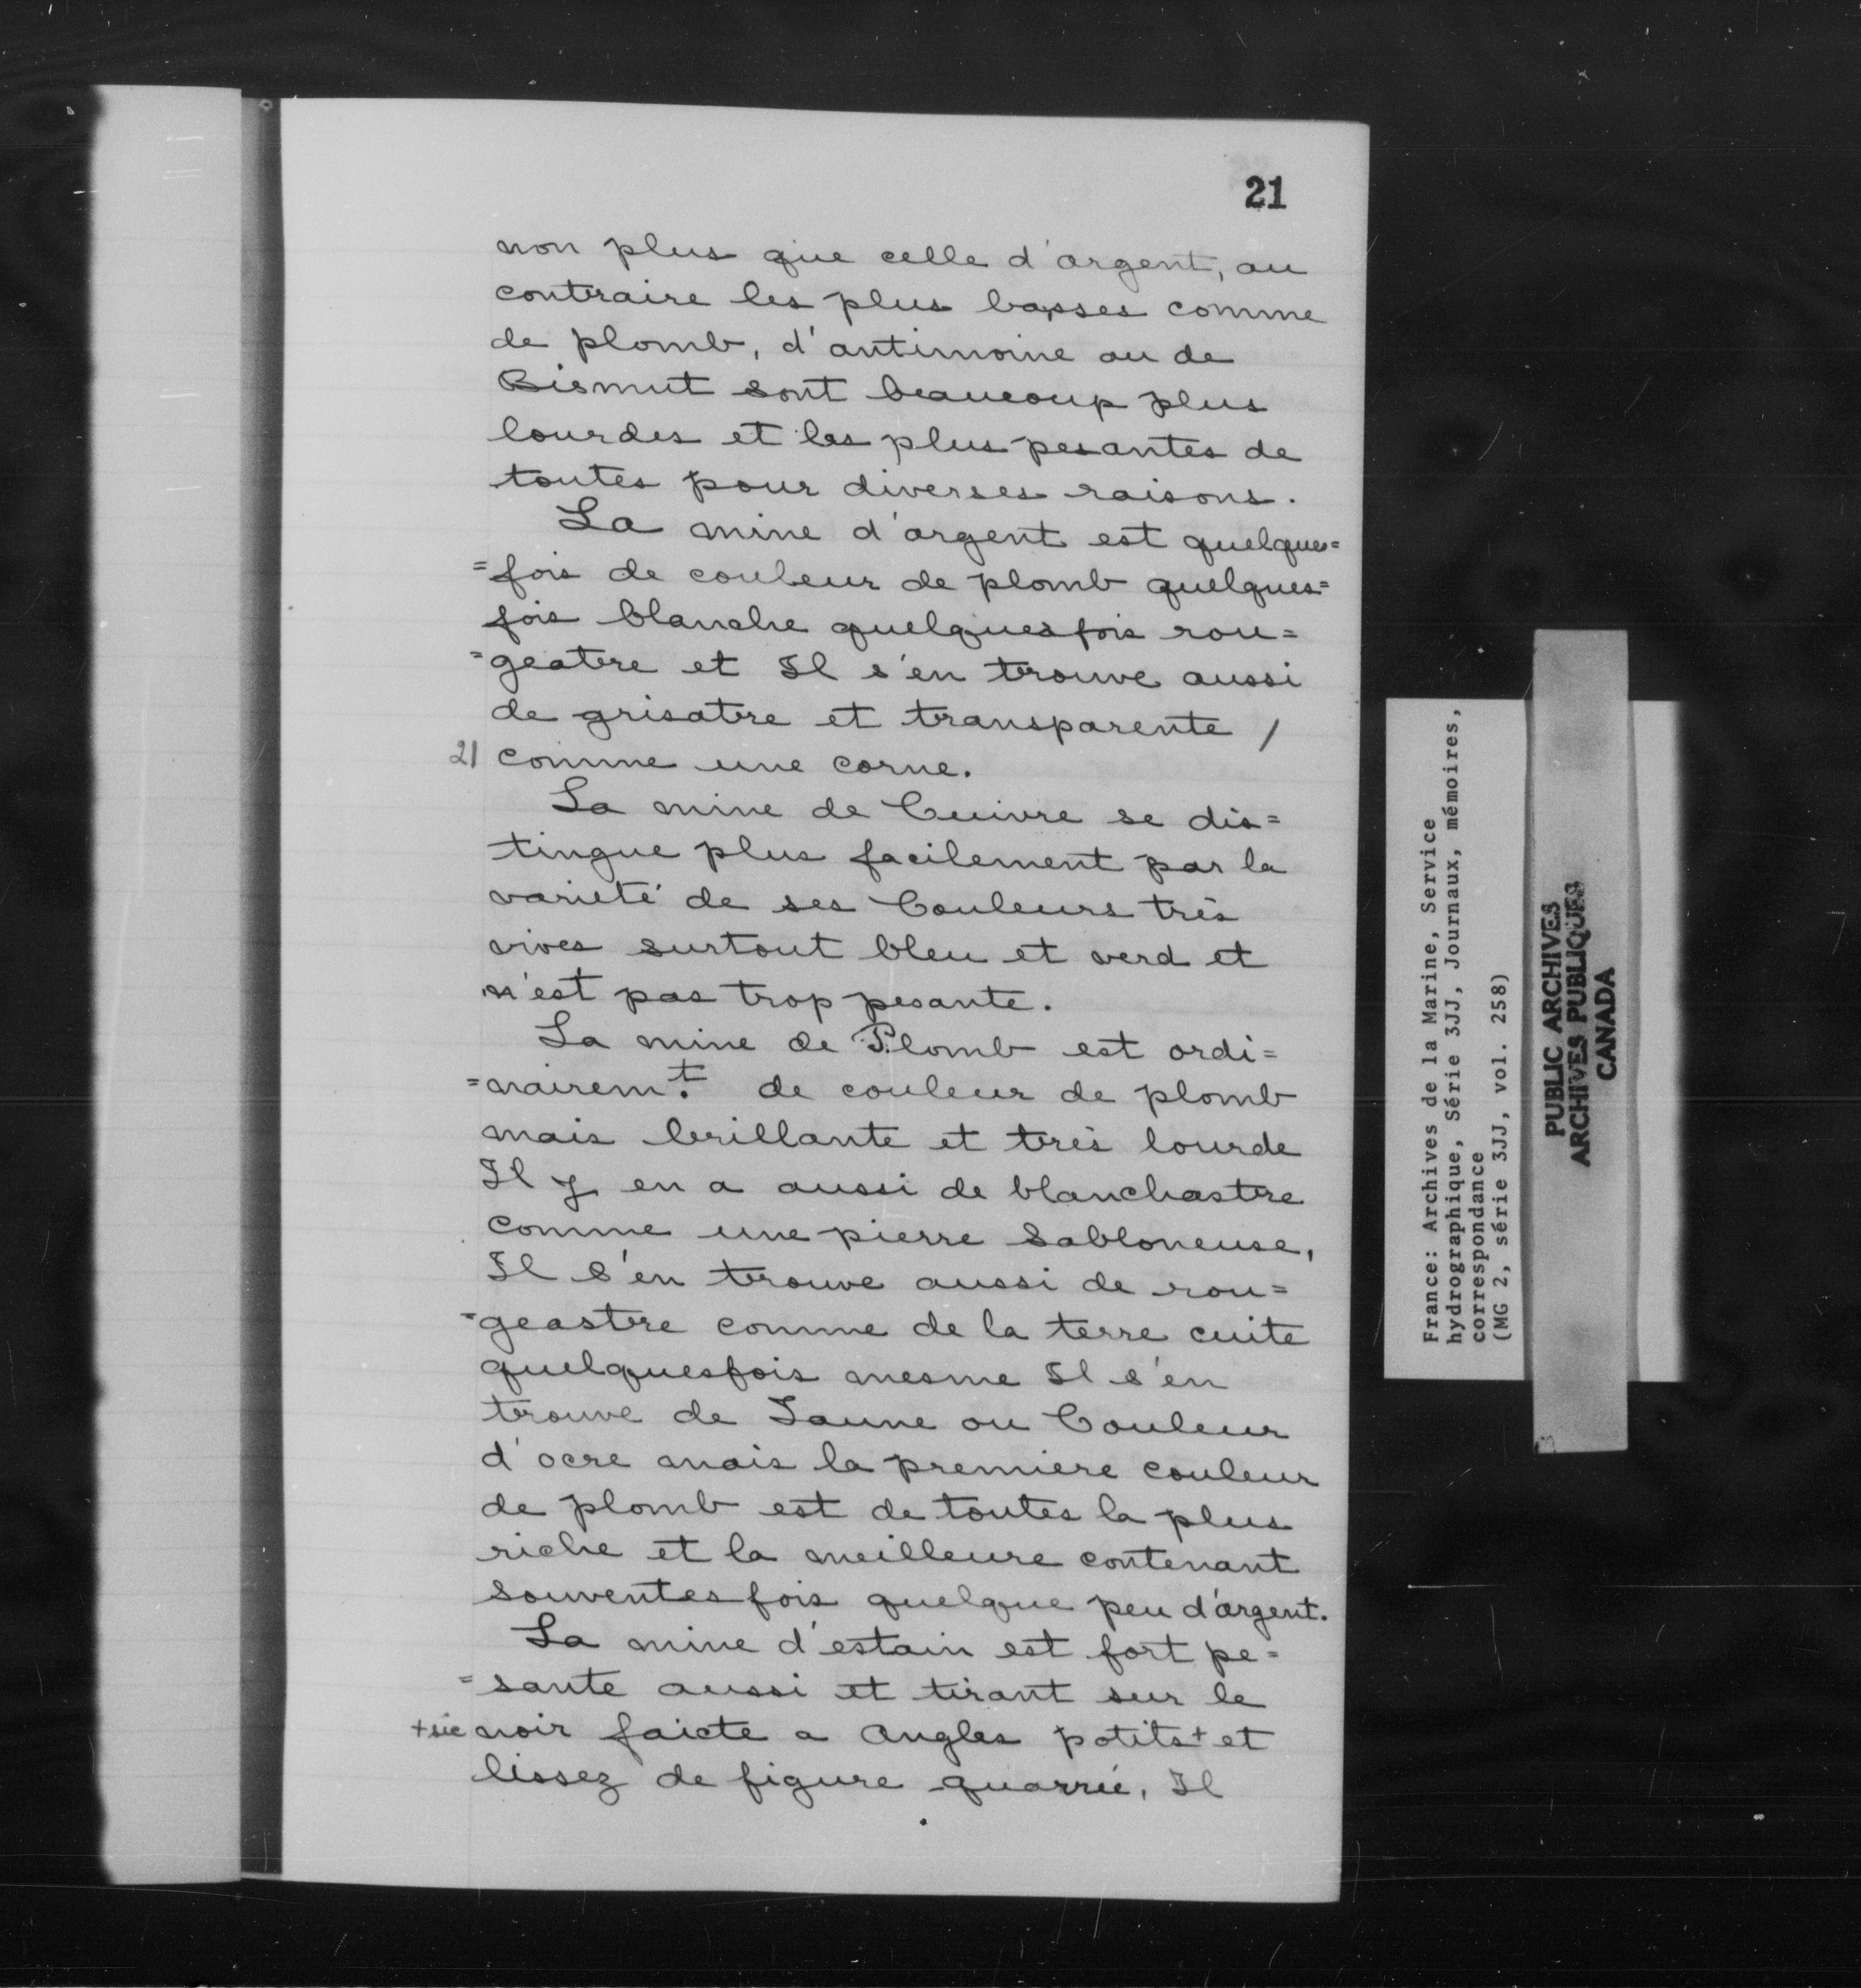 21
non plus que celle d'argent, au
contraire les plus basses comme
de plomb, d'antimoine ou de
Bismut sont beaucoup plus
lourdes et les plus pesantes de
toutes pour diverses raisons.
La mine d'argent est quelques=
=fois de couleur de plomb quelques=
fois blanche quelquesfois rou=
=geatre et Il s'en trouve aussi
de grisatre et transparente /
21 comme une corne.
La mine de Cuivre se dis=
tingue plus facilement par la
varieté de ses Couleurs très
vives surtout bleu et verd et
n'est pas trop pesante.
La mine de Plomb est ordi=
=nairem.t de couleur de plomb
mais brillante et très lourde
Il y en a aussi de blanchastre
comme une pierre Sabloneuse,
Il s'en trouve aussi de rou=
=geastre comme de la terre cuite
quelquesfois mesme Il s'en
trouve de Jaune ou Couleur
d'ocre mais la premiere couleur
de plomb est de toutes la plus
riche et la meilleure contenant
souventesfois quelque peu d'argent.
La mine d'estain est fort pe=
=sante aussi et tirant sur le
+sic noir faicte a Angles potits+ et
lissez de figure quarrée, Il
France: Archives de la Marine, Service
hydrographique, Série 3JJ, Journaux, mémoires,
correspondance
(MG 2, série 3JJ, vol. 258)
PUBLIC ARCHIVES
ARCHIVES PUBLIQUES
CANADA